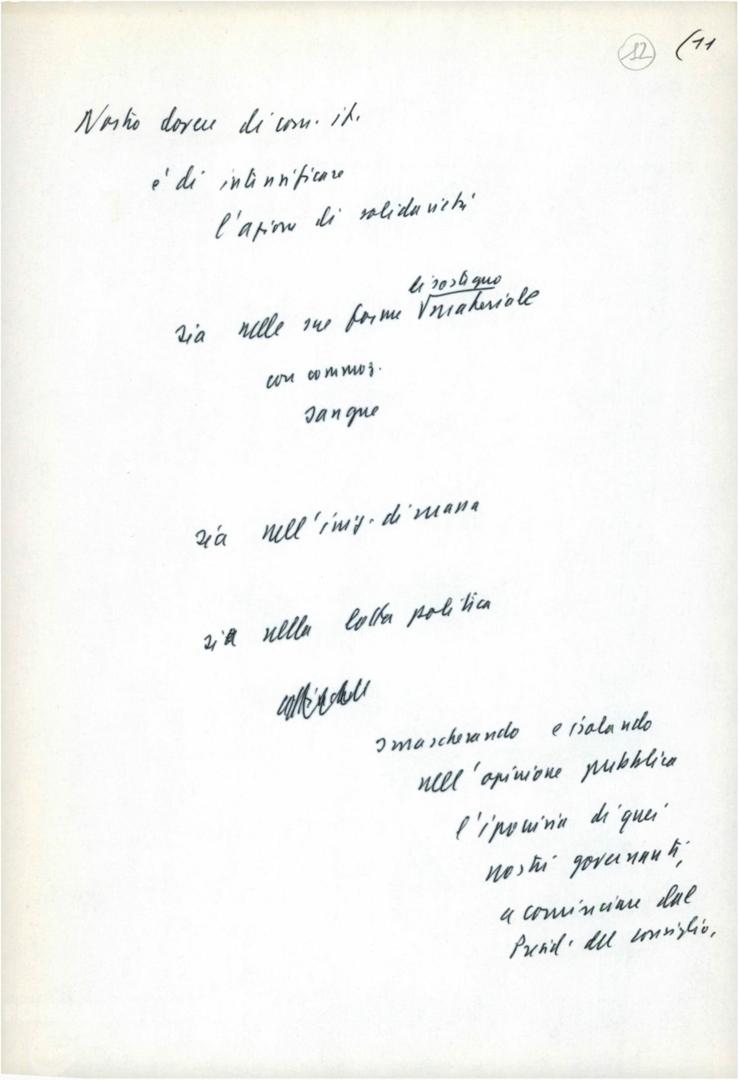 12 (11
Nostro dovere di com. it.
è di intensificare
l'azione di solidarietà
di sostegno
sia nelle sue forme materiale
con commoz.
sangue
sia nell'iniz. di massa
sia nella lotta politica
smascherando e isolando
nell'opinione pubblica
l'ipocrisia di quei
nostri governanti,
a cominciare dal
Presid. del consiglio.